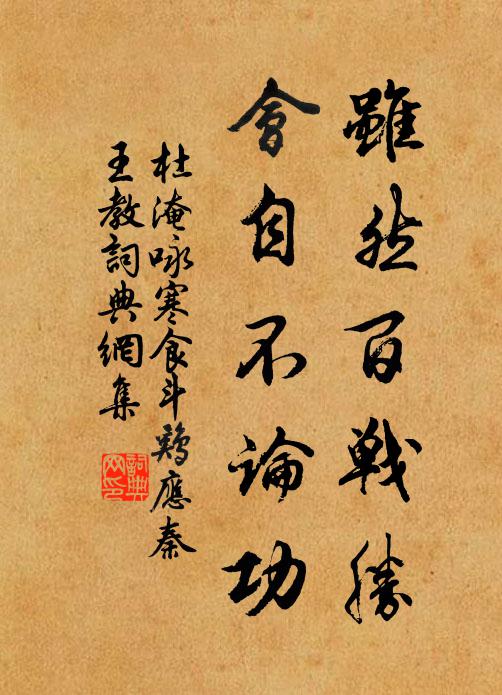 雖然百戰勝
會自不論功
杜淹咏寒食斗鷄應秦
王教詞典網集
詞典
网印